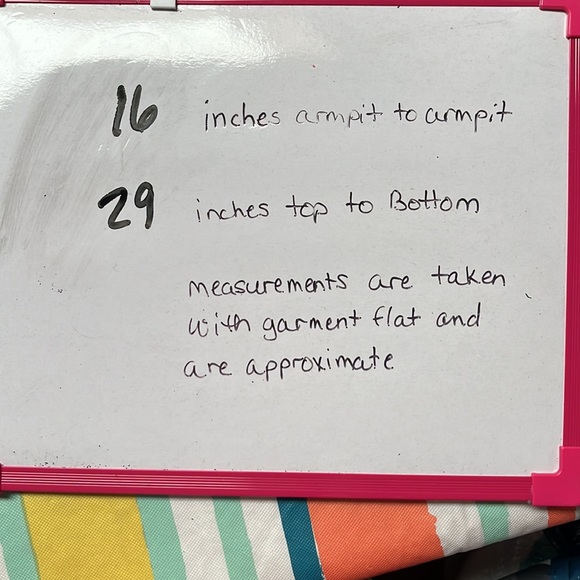 16 inches armpit to armpit
29 inches top to Bottom
measurements are taken
with garment flat and
are approximate